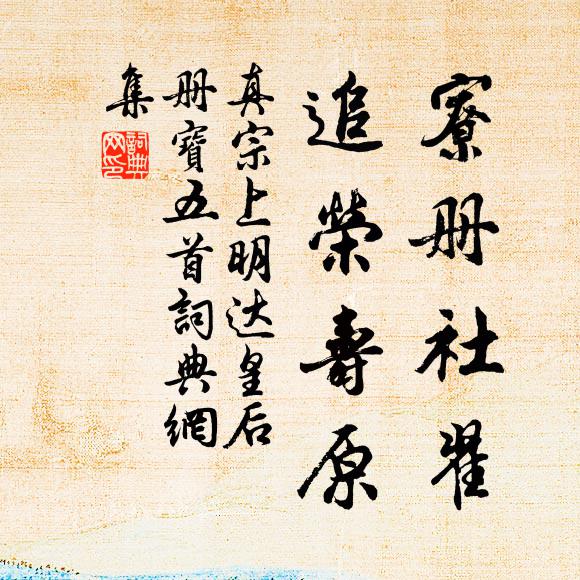 寮册社
追榮壽原
真宗上明达皇后
册寶五首詞典網
集
詞典
网印